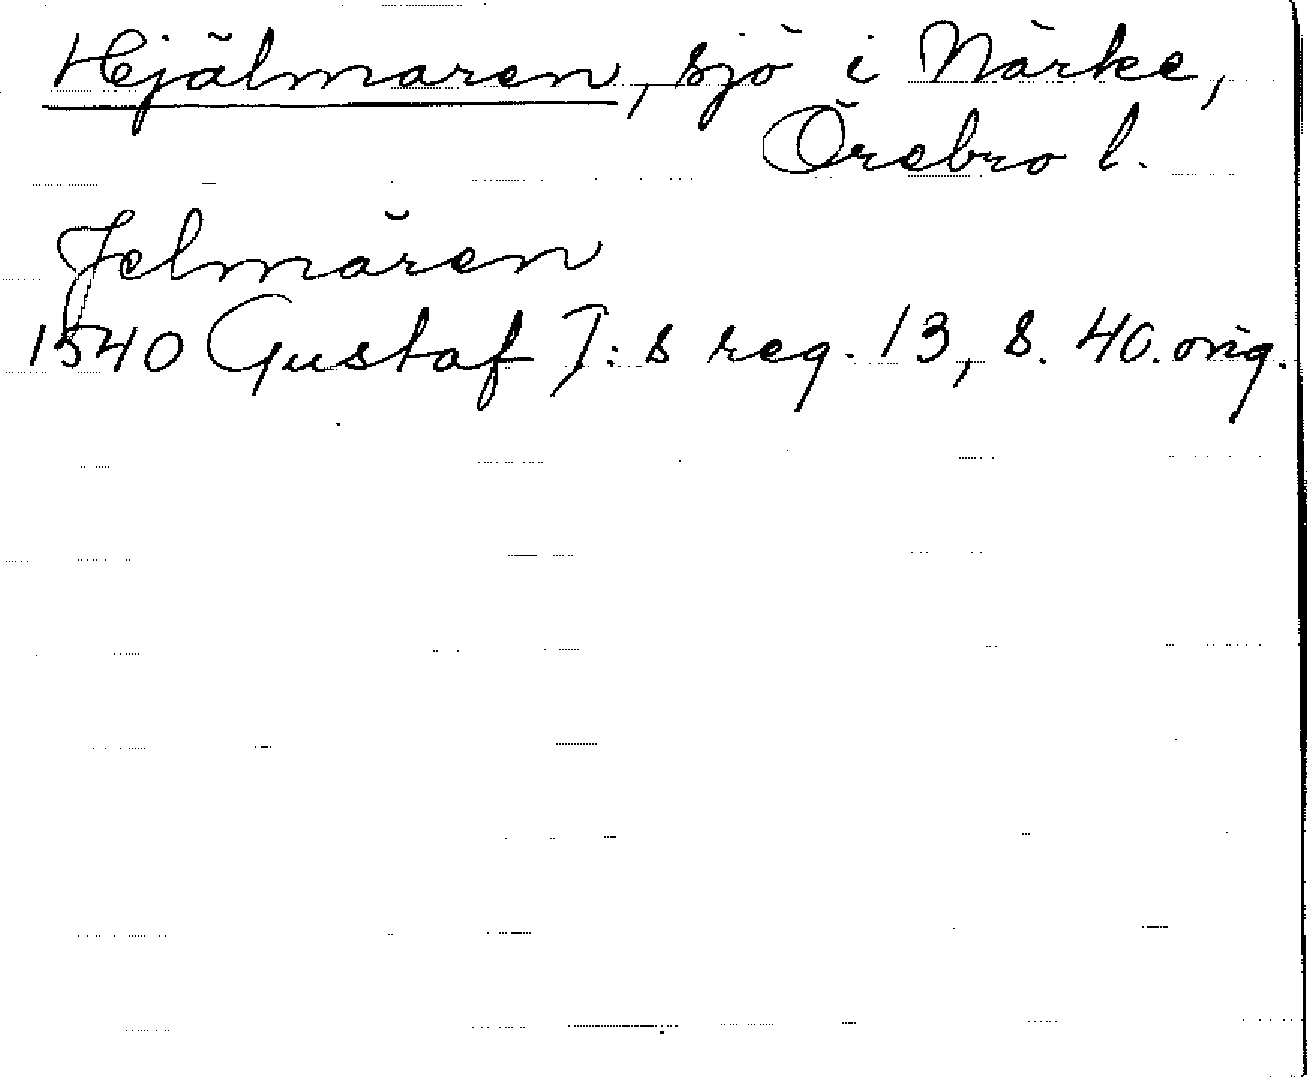 Hjälmaren, sjö i Närke,
Örebro l.
Jelmären
1540 Gustaf I:s reg. 13, s. 40. orig.